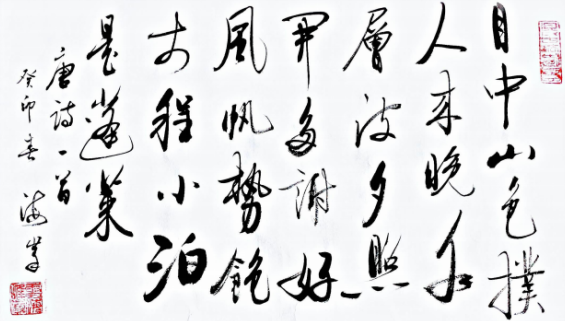 目中山色撲
人来晚水
層波夕照
開多謝好
風帆勢飽
程小泊
是蓬萊
唐詩一首
癸卯春 海峯